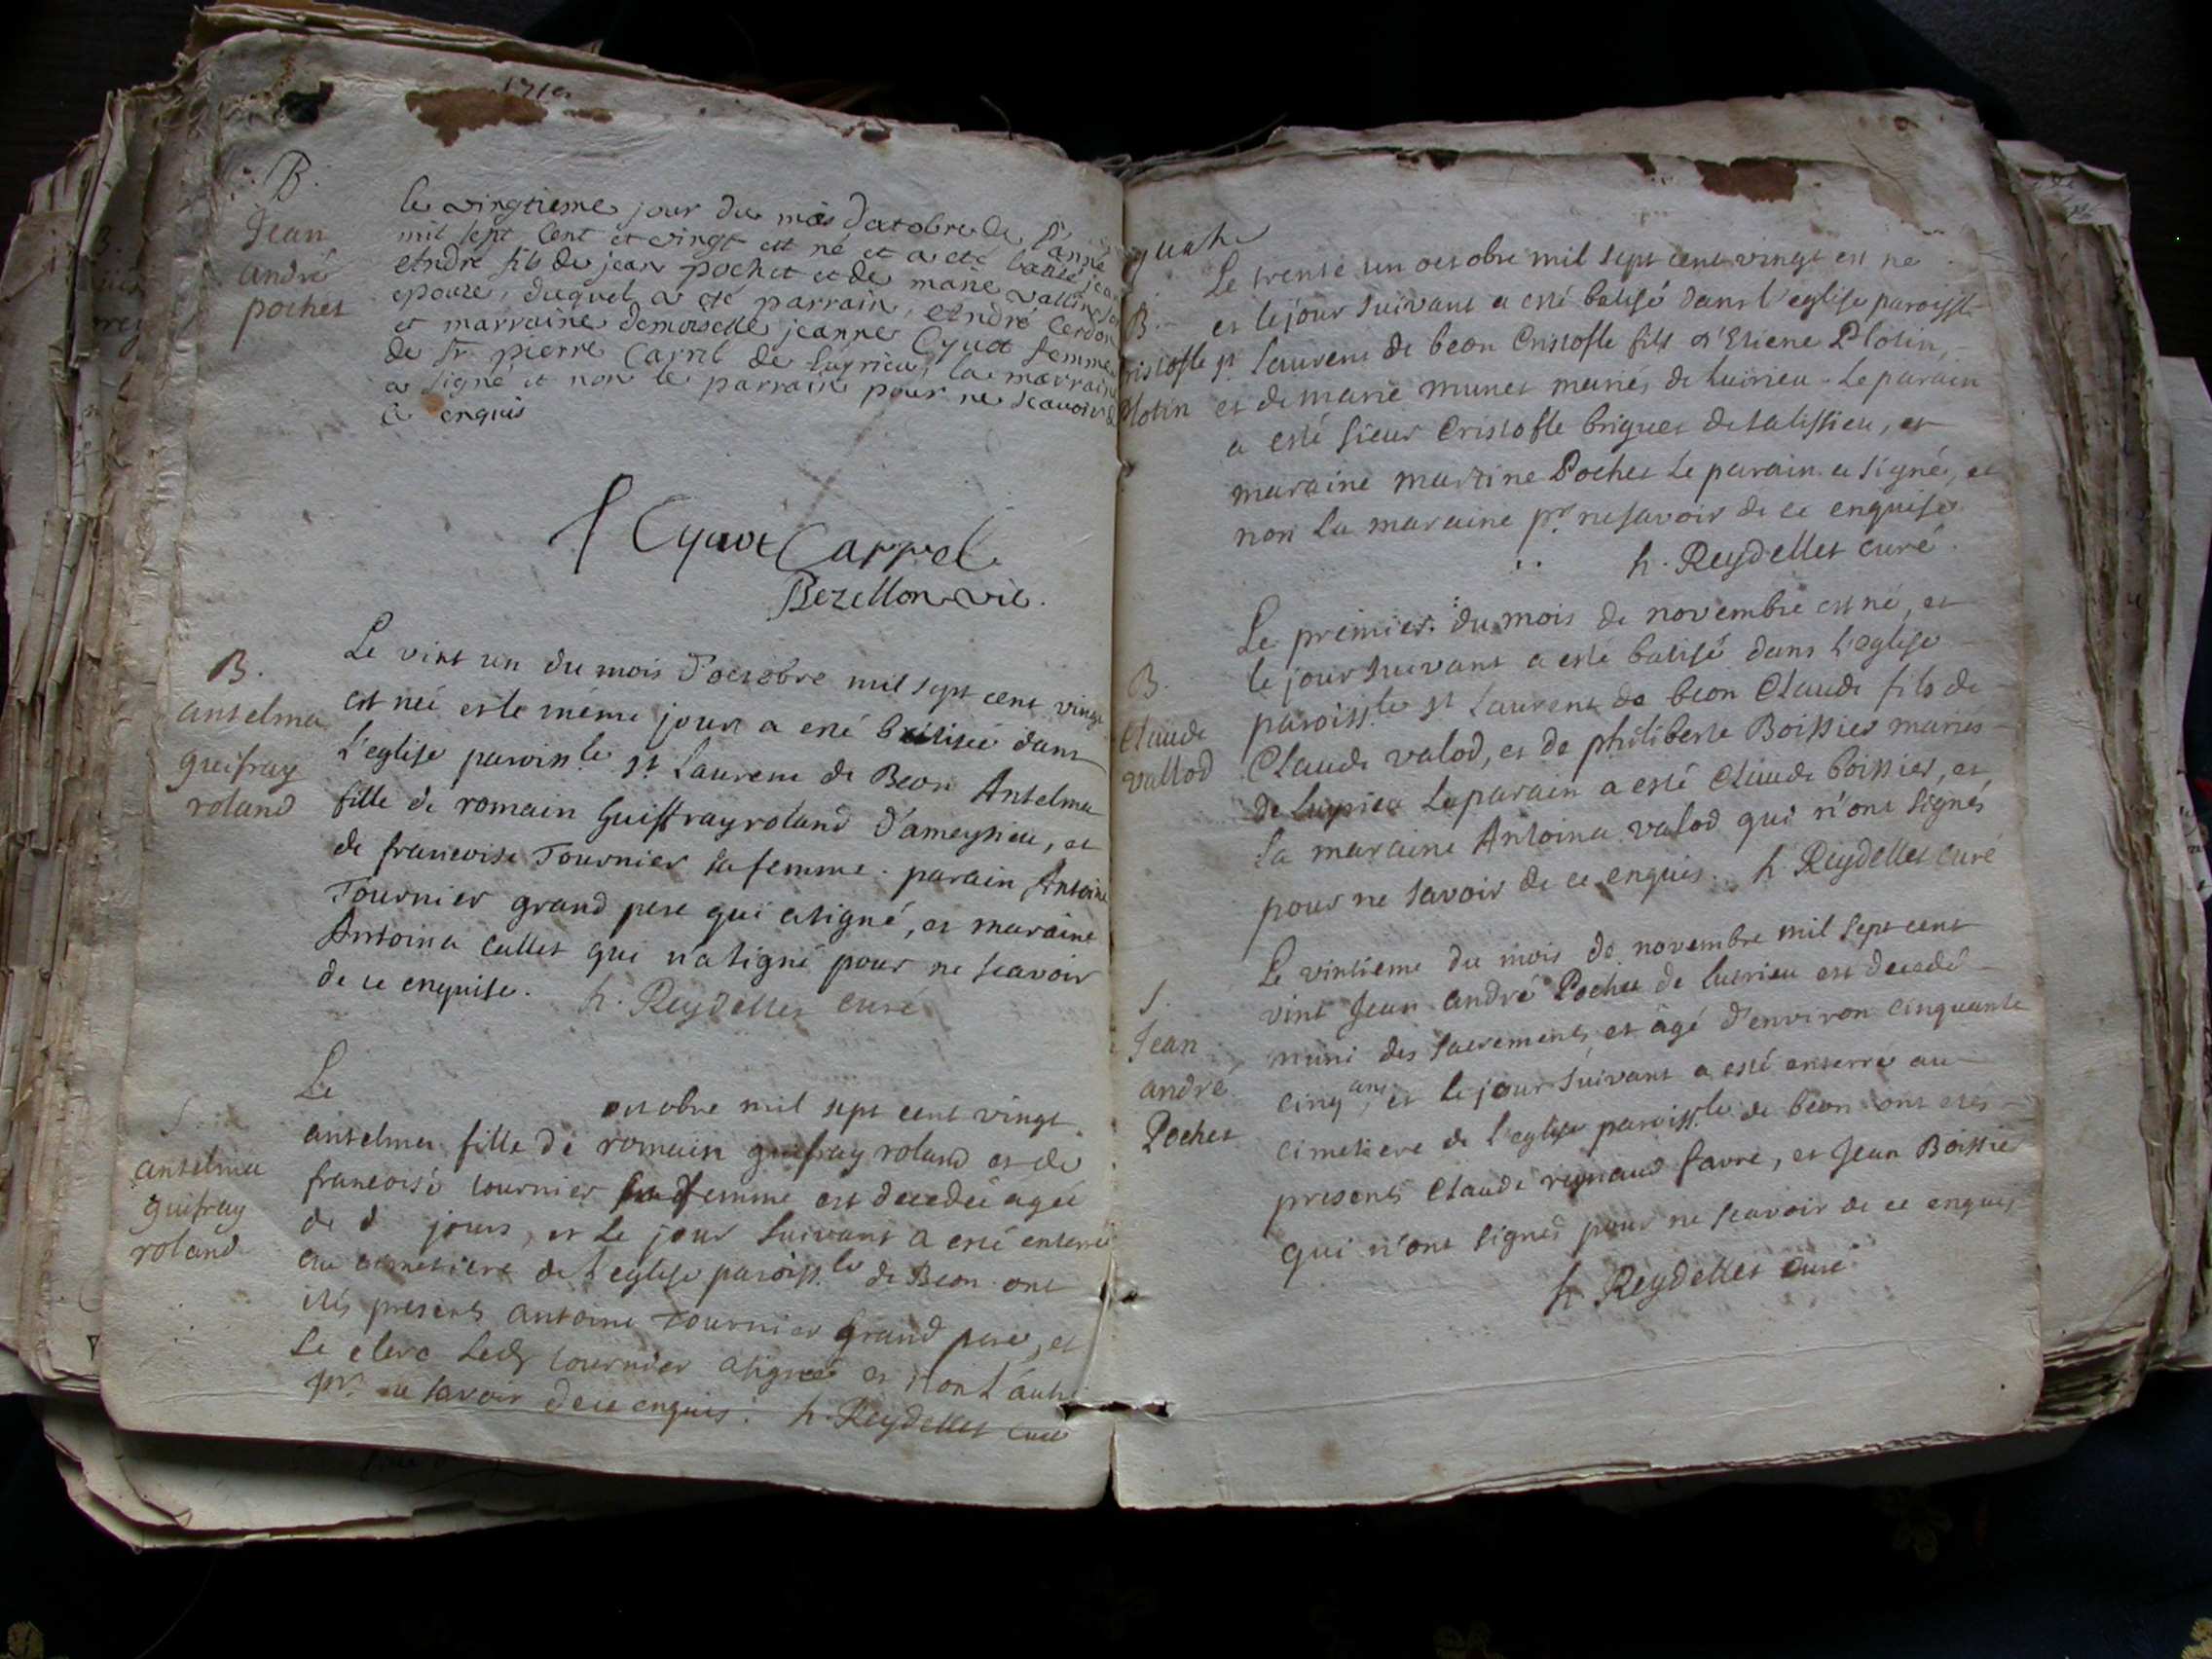 B.
Jean
andré
pochet
le vingtieme jour du mois d'octobre de l'anné
mil sept cent et vingt est né et a eté batisé jean
André fils de jean pochet et de marie vallin son
epouze, duquel a eté parrain, André Cerdon
et marraine demoiselle jeanne Cyuot femme
de Sr. pierre Carrel de Luyrieu, la marraine
a signé et non le parrain pour ne scavoir
enquis
Cyuot Carrel
Bezellon vic.
B.
antelma
guifray
roland
Le vint un du mois d'octobre mil sept cent vingt
est neé et le méme jour a esté batisée dans
l'eglise paroiss.le st Laurent de Beon Antelma
fille de romain Guiffray roland d'ameysieu, et
de francoise Tournier sa femme. parain Antoine
Tournier grand pere qui a signé, et maraine
Antoina Cullet qui n'a signé pour ne scavoir
de ce enquise. h. Reydellet curé
S.
antelma
guifray
roland
Le octobre mil sept cent vingt
antelma fille de romain guifray roland et de
francoise tournier sa femme est decedeé ageé
de d jours, et le jour suivant a esté enterreé
au cimetiere de l'eglise paroiss.le de Beon ont
étés presents antoine tournier grand pere, et
Le clerc Led tournier a signé et non l'autre
pr. ne savoir de ce enquis. h. Reydellet curé
B.
Cristofle
Plotin
Le trente un octobre mil sept cent vingt est ne
et le jour suivant a esté batisé dans l'eglise paroissle
st Laurent de beon Cristofle fils d'Etiene Plotin,
et de marie munet mariés de luirieu. Le parain
a esté sieur Cristofle briguet de talissieu, et
maraine martine Pochet Le parain a signé, et
non La maraine pr ne savoir de ce enquise
h. Reydellet curé.
B.
Claude
vallod
Le premier du mois de novembre est né, et
le jour suivant a esté batisé dans l'eglise
paroiss.le st Laurent de beon Claude fils de
Claude valod, et de philiberte Boissier mariés
de Luyrieu Le parain a esté Claude boissier, et
la maraine Antoina valod qui n'ont signés
pour ne savoir de ce enquis. h Reydellet curé
S.
Jean
andré
Pochet
Le vintieme du mois de novembre mil sept cent
vint Jean andré Pochet de luirieu est decedé
muni des sacrements, et âgé d'environ cinquante
cinq ans, et le jour suivant a esté enterré au
cimetiere de l'eglise paroiss.le de beon ont étés
presents Claude reynaud favre, et Jean Boissier
qui n'ont signés pour ne scavoir de ce enquis
h Reydellet curé